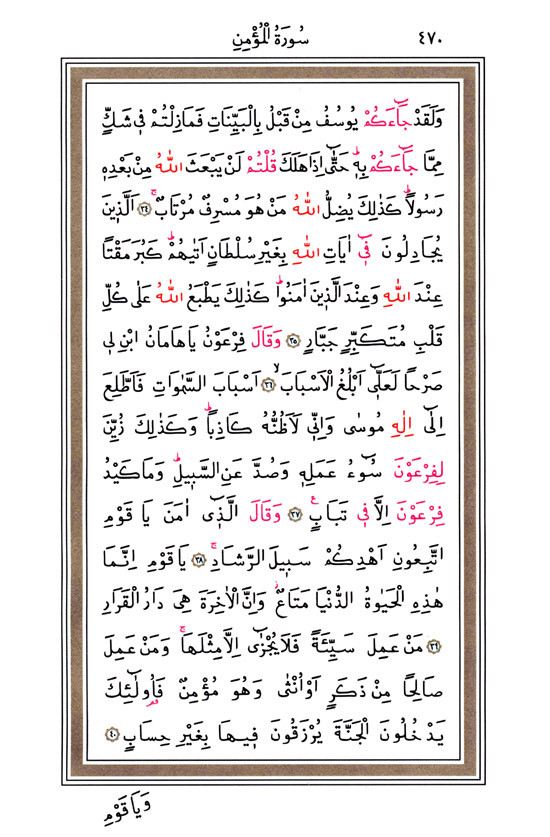 ٤٧٠ سُورَةُ الْمُؤْمِنِ
وَلَقَدْ جَٓاءَكُمْ يُوسُفُ مِنْ قَبْلُ بِالْبَيِّنَاتِ فَمَازِلْتُمْ فٖي شَكٍّ
مِمَّا جَٓاءَكُمْ بِهٖؕ حَتّٰٓى اِذَا هَلَكَ قُلْتُمْ لَنْ يَبْعَثَ اللّٰهُ مِنْ بَعْدِهٖ
رَسُولاًؕ كَذٰلِكَ يُضِلُّ اللّٰهُ مَنْ هُوَ مُسْرِفٌ مُرْتَابٌۚ ﴿٣٤﴾ اَلَّذٖينَ
يُجَادِلُونَ فٖٓي اٰيَاتِ اللّٰهِ بِغَيْرِ سُلْطَانٍ اَتٰيهُمْؕ كَبُرَ مَقْتًا
عِنْدَ اللّٰهِ وَعِنْدَ الَّذٖينَ اٰمَنُواؕ كَذٰلِكَ يَطْبَعُ اللّٰهُ عَلٰى كُلِّ
قَلْبِ مُتَكَبِّرٍ جَبَّارٍ ﴿٣٥﴾ وَقَالَ فِرْعَوْنُ يَا هَامَانُ ابْنِ لٖي
صَرْحًا لَعَلّٖٓي اَبْلُغُ الْاَسْبَابَۙ ﴿٣٦﴾ اَسْبَابَ السَّمٰوَاتِ فَاَطَّلِعَ
اِلٰٓى اِلٰهِ مُوسٰى وَاِنّٖي لَاَظُنُّهُ كَاذِباًؕ وَكَذٰلِكَ زُيِّنَ
لِفِرْعَوْنَ سُٓوءُ عَمَلِهٖ وَصُدَّ عَنِ السَّبٖيلِؕ وَمَا كَيْدُ
فِرْعَوْنَ اِلَّا فٖي تَبَابٍࣖ ﴿٣٧﴾ وَقَالَ الَّذٖٓي اٰمَنَ يَا قَوْمِ
اتَّبِعُونِ اَهْدِكُمْ سَبٖيلَ الرَّشَادِۚ ﴿٣٨﴾ يَا قَوْمِ اِنَّمَا
هٰذِهِ الْحَيٰوةُ الدُّنْيَا مَتَاعٌؗ وَاِنَّ الْاٰخِرَةَ هِيَ دَارُ الْقَرَارِ
﴿٣٩﴾ مَنْ عَمِلَ سَيِّئَةً فَلَا يُجْزٰٓى اِلَّا مِثْلَهَاۚ وَمَنْ عَمِلَ
صَالِحًا مِنْ ذَكَرٍ اَوْ اُنْثٰى وَهُوَ مُؤْمِنٌ فَاُو۬لٰٓئِكَ
يَدْخُلُونَ الْجَنَّةَ يُرْزَقُونَ فٖيهَا بِغَيْرِ حِسَابٍ ﴿٤٠﴾
وَيَا قَوْمِ